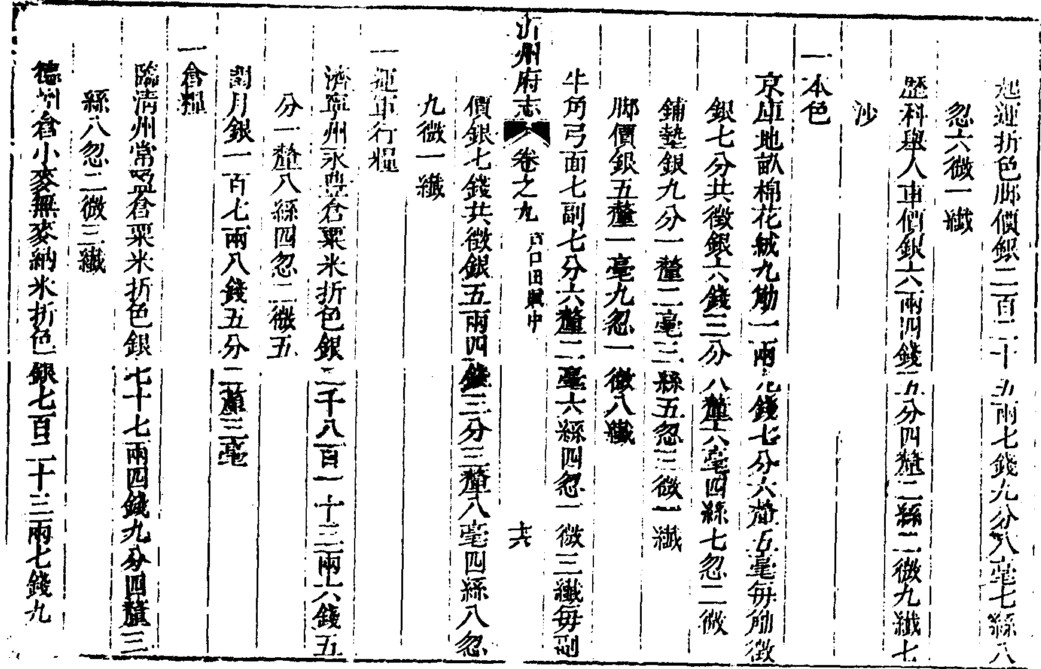 起運折色脚價銀二百二十五兩七錢九分八毫七絲八
忽六微一纖
歷科舉人車價銀六兩四錢五分四釐二絲二微九纖七
沙
一本色
京庫地畝棉花絨九觔一兩九錢七分六釐五毫每觔徵
銀七分共徵銀六錢三分八釐六毫四絲七忽二微
鋪墊銀九分一釐二毫三絲五忽三微一纖
脚價銀五釐一毫九忽一微八纖
牛角弓面七副七分六釐二毫六絲四忽一微三纖每副
沂州府志 卷之九 戶口田賦中 十六
價銀七錢共徵銀五兩四錢三分三釐八毫四絲八忽
九微一纖
一運軍行糧
濟寧州永豊倉粟米折色銀二千八百一十三兩六錢五
分一釐八絲四忽二微五
閏月銀一百七兩八錢五分二釐三毫
一倉糧
臨清州常盈倉粟米折色銀七十七兩四錢九分四釐三
絲八忽二微三纖
德州倉小麥無麥納米折色銀七百二十三兩七錢九